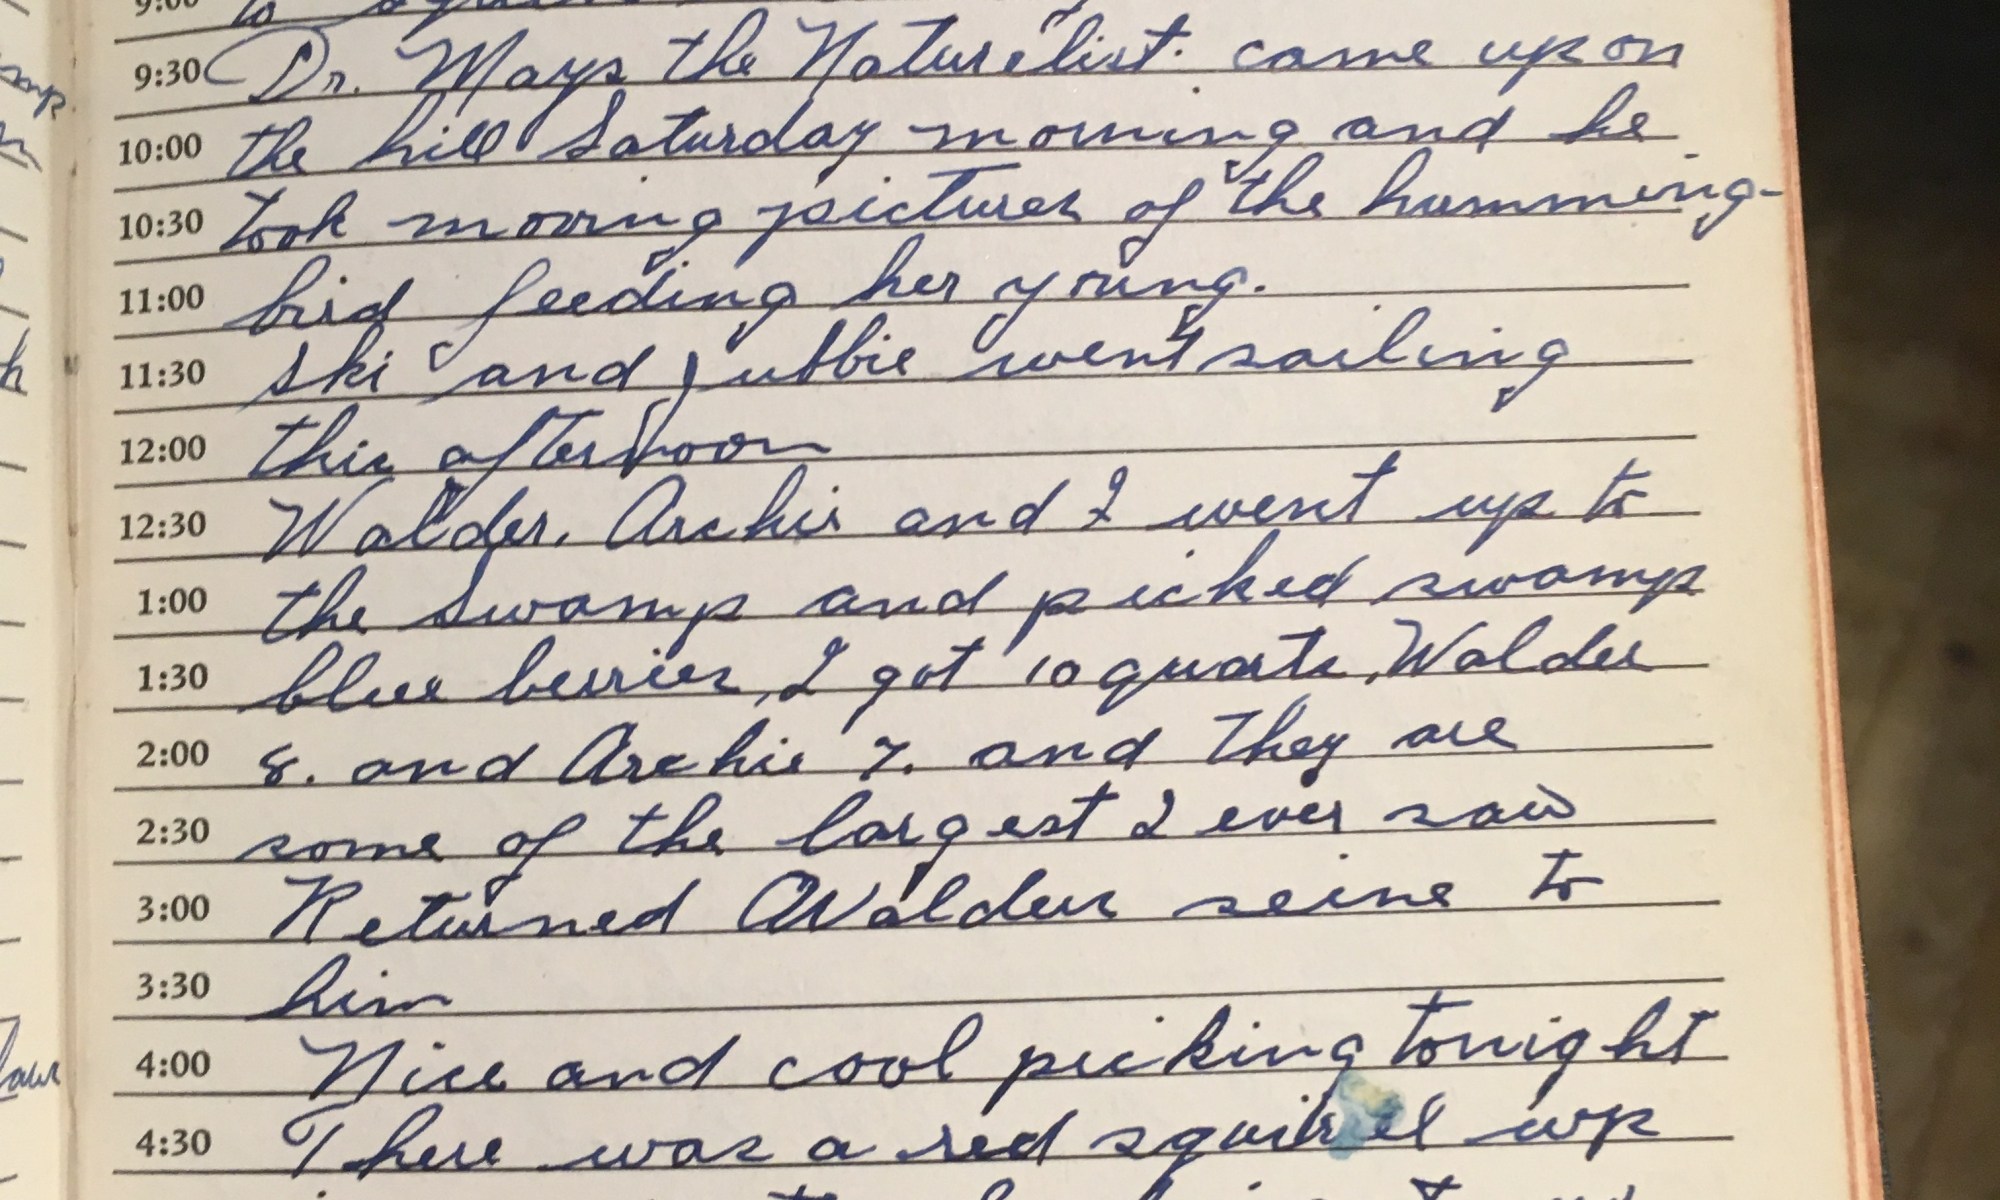 9:00 to
9:30 Dr. Mays the Naturalist. came up on
10:00 the hill Saturday morning and he
10:30 took moving pictures of the humming-
11:00 bird feeding her young.
11:30 Ski and Jubbie went sailing
12:00 this afternoon
12:30 Walder. Archie and I went up to
1:00 the swamp and picked swamp
1:30 blue berries, I got 10 quarts, Walder
2:00 8. and Archie 7. and they are
2:30 some of the largest I ever saw
3:00 Returned Walders seine to
3:30 him
4:00 Nice and cool picking tonight
4:30 There was a red squirrel up